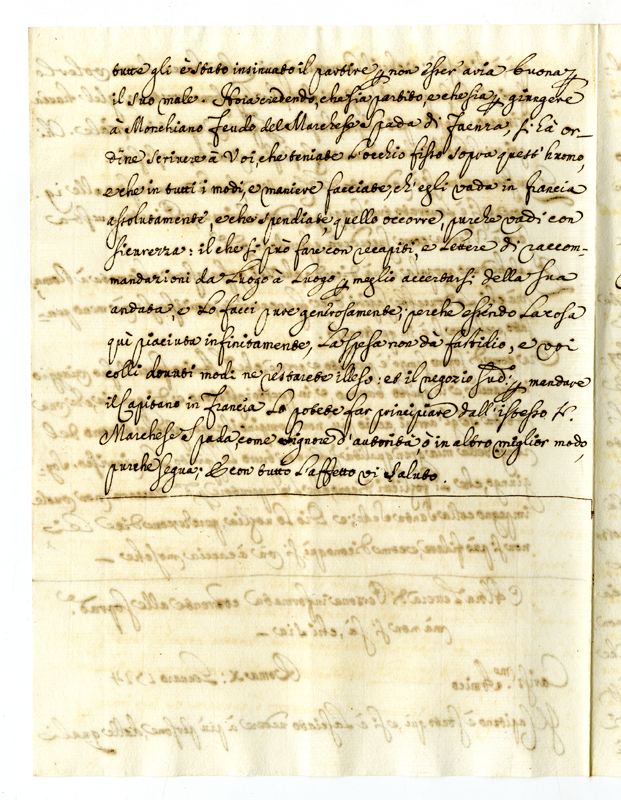 tutte gli è stato insinuato il partire p non esser aria buona p
il suo male. Hora credendo, che sia partito, e che sia p giungere
à Monchiano feudo del Marchese Spada di Faenza, si dà or-
dine scrivere à Voi, che teniate l'occhio fisso sopra quest'huomo,
e che in tutti i modi, e maniere facciate, ch'egli vada in francia
assolutamente, e che spendiate quello occorre, purche vadi con
sicurezza: il che si può fare con recapiti, e lettere di raccom-
mandazioni da luogo à luogo p meglio accertarsi della sua
andata, e lo facci pure generosamente; perche essendo la cosa
quì piaciuta infinitamente, la spesa non dà fastidio, e voi
colli dovuti modi ne restarete illeso: et il negozio sud.º p mandare
il Capitano in Francia lo potete far principiare dall'istesso S.
Marchese Spada, come Signore d'autorità, ò in altro miglior modo,
purche segua; E con tutto l'affetto vi saluto.